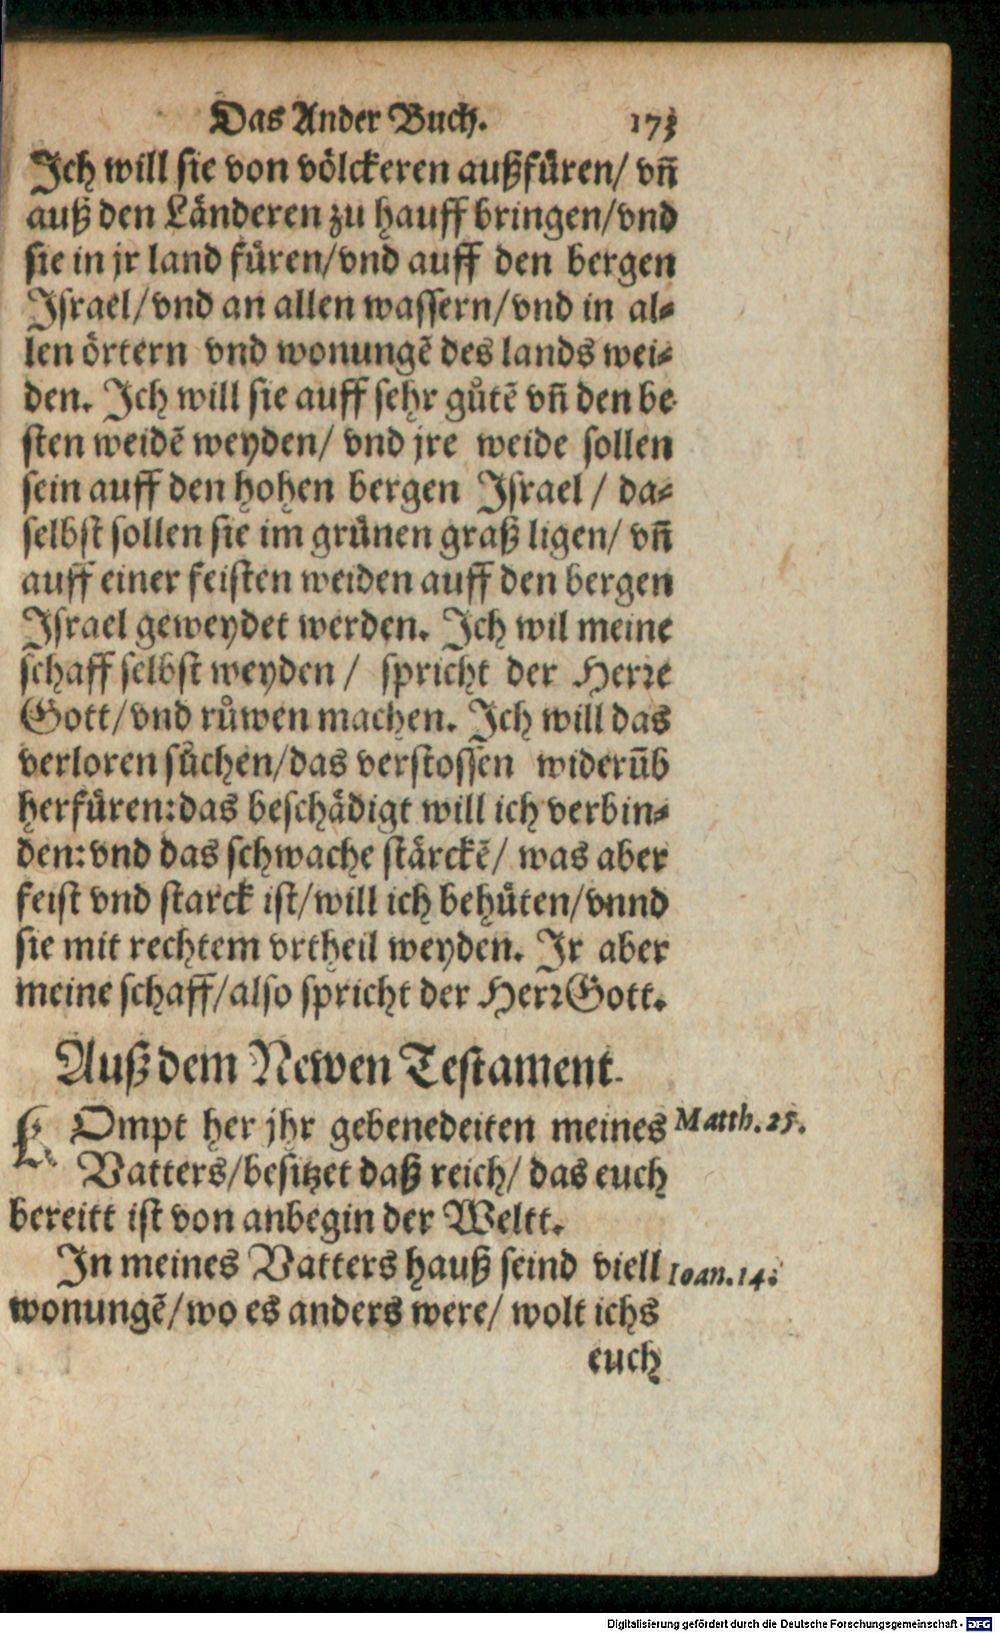 Das Ander Buch. 173
Ich will sie von völckeren außfüren/ vñ
auß den Länderen zu hauff bringen/vnd
sie in jr land füren/vnd auff den bergen
Israel/vnd an allen wassern/vnd in al⸗
len örtern vnd wonungẽ des lands wei⸗
den. Ich will sie auff sehr gůtẽ vñ den be
sten weidẽ weyden/ vnd jre weide sollen
sein auff den hohen bergen Israel / da⸗
selbst sollen sie im grünen graß ligen/ vñ
auff einer feisten weiden auff den bergen
Israel geweydet werden. Ich wil meine
schaff selbst weyden / spricht der Herre
Gott/vnd růwen machen. Ich will das
verloren sůchen/das verstossen widerũb
herfüren:das beschädigt will ich verbin⸗
den:vnd das schwache stärckẽ/ was aber
feist vnd starck ist/will ich behüten/vnnd
sie mit rechtem vrtheil weyden. Ir aber
meine schaff/also spricht der Herr Gott.
Auß dem Newen Testament.
KOmpt her jhr gebenedeiten meines Matth. 25.
Vatters/besitzet daß reich/ das euch
bereitt ist von anbegin der Weltt.
In meines Vatters hauß seind viell Ioan. 14.
wonungẽ/wo es anders were/ wolt ichs
euch
Digitalisierung gefördert durch die Deutsche Forschungsgemeinschaft - DFG